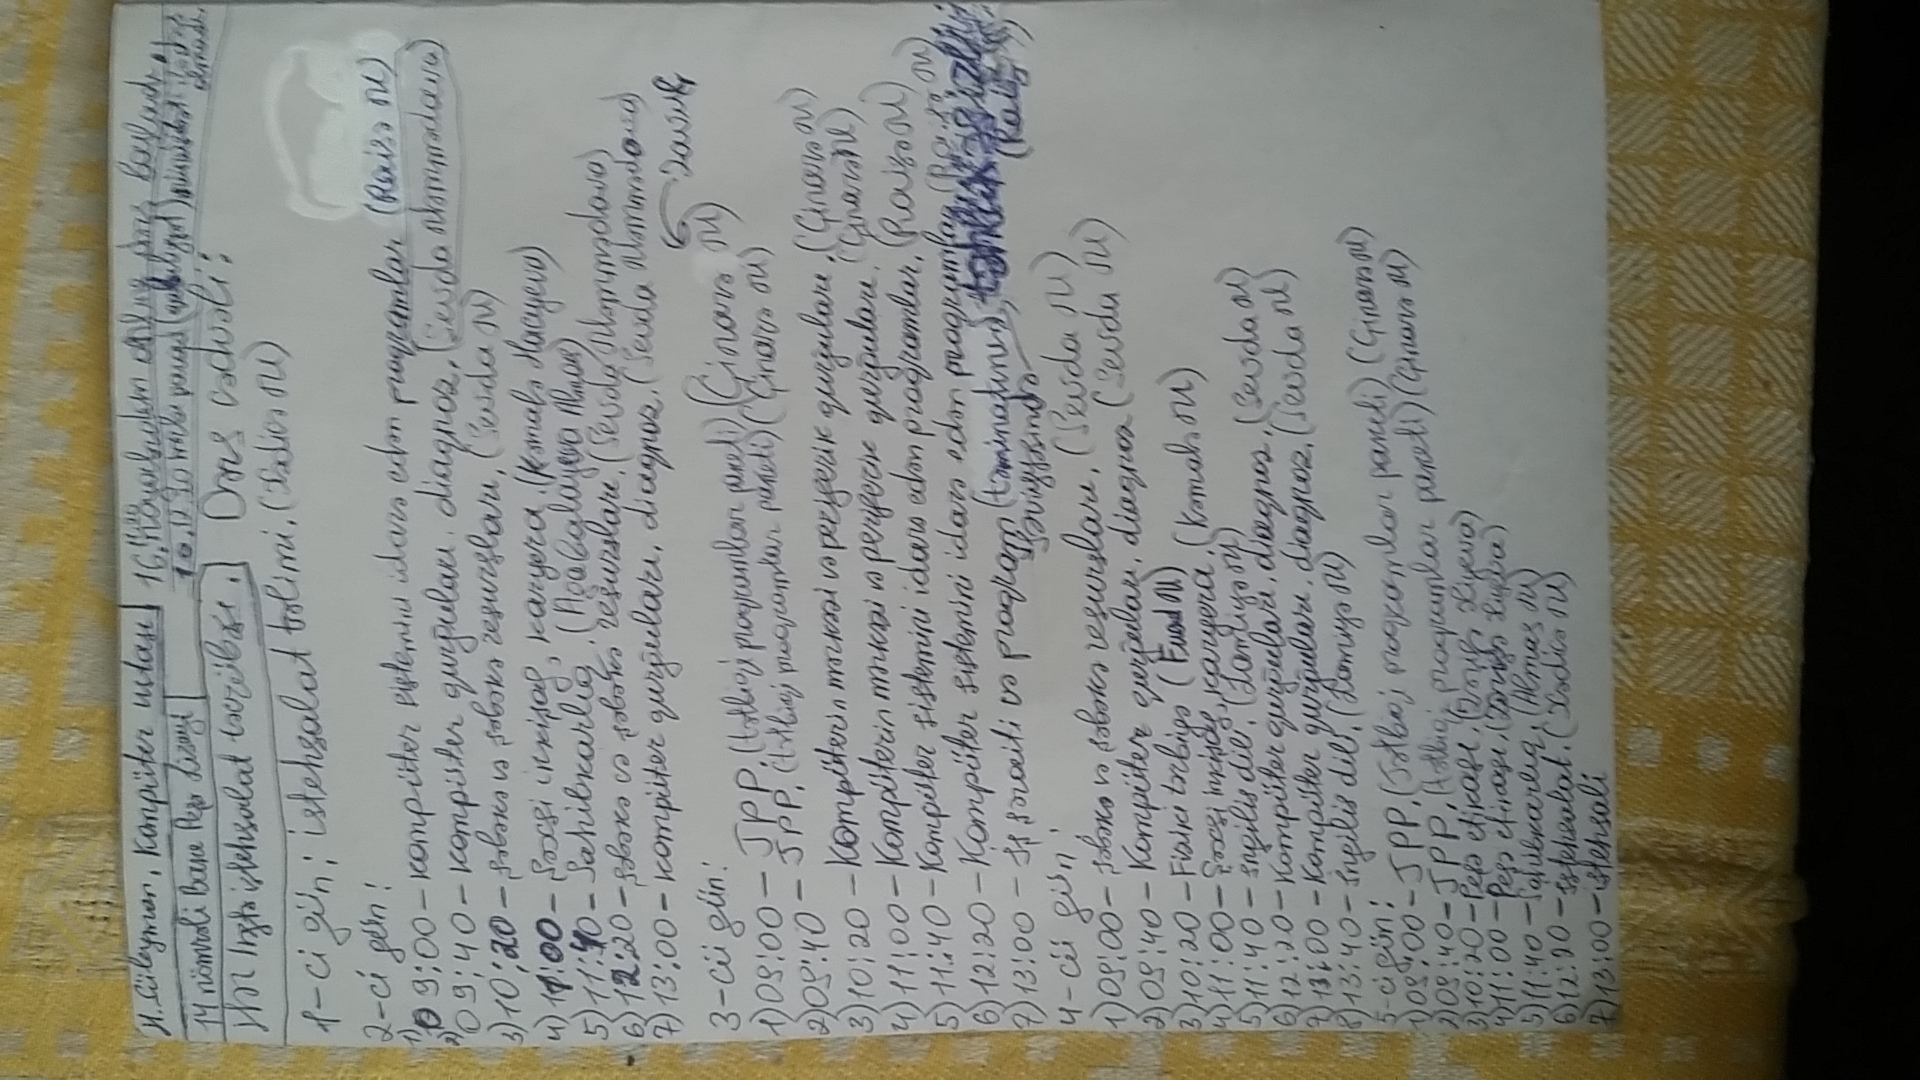 H.Süleyman, Kompüter ustası
14 nömrəli Bakı Peşə Liseyi
istehsalat təcrübəsi. Dərs cədvəli:
1-ci gün; istehsalat təlimi, (Xədicə M)
2-ci gün:
1) 09:00 - kompüter sistemini idarə edən programlar (Raisə M)
2) 09:40 - kompüter qurğuları, diagnoz, (Sevda Məmmədova)
3) 10:20 - şəbəkə və şəbəkə resursları, (Sevda M)
4) 11:00 - Şəxsi inkişaf, karyera, (Kəmalə Hacıyeva)
5) 11:40 - Sahibkarlıq, (Ağabalayeva Almaz)
6) 12:20 - şəbəkə və şəbəkə resursları, (Sevda Məmmədova)
7) 13:00 - kompüter qurğuları, diagnoz, (Sevda Məmmədova)
3-cü gün:
1) 09:00 - TPP, (tətbiqi programlar paketi) (Çinarə M)
2) 09:40 - TPP, (tətbiqi programlar paketi) (Çinarə M)
3) 10:20 - Kompüterin mərkəzi və periferik qurğuları, (Çinarə M)
4) 11:00 - Kompüterin mərkəzi və periferik qurğuları, (Çinarə M)
5) 11:40 - Kompüter sistemini idarə edən programlar, (Raisə M)
6) 12:20 - Kompüter sistemini idarə edən programlar (Raisə M)
7) 13:00 - İş şəraiti və program (təminatının), təhlükəsizliyi
səviyyəsində (Raisə M)
4-cü gün:
1) 09:00 - şəbəkə və şəbəkə resursları, (Sevda M)
2) 09:40 - Kompüter qurğuları, diagnoz (Sevda M)
3) 10:20 - Fiziki tərbiyə (Fuad M)
4) 11:00 - Şəxsi inkişaf, karyera, (Kəmalə M)
5) 11:40 - İngilis dili, (Lamiyə M)
6) 12:20 - Kompüter qurğuları, diagnoz, (Sevda M)
7) 13:00 - Kompüter qurğuları, diagnoz, (Sevda M)
8) 13:40 - İngilis dili, (Lamiyə M)
5-ci gün:
1) 09:00 - TPP, (Tətbiqi programlar paketi) (Çinarə M)
2) 09:40 - TPP, (tətbiqi programlar paketi) (Çinarə M)
3) 10:20 - Peşə etikası,
4) 11:00 - Peşə etikası,
5) 11:40 - Sahibkarlıq, (Almaz M)
6) 12:20 - istehsalat. (Xədicə M)
7) 13:00 - istehsali